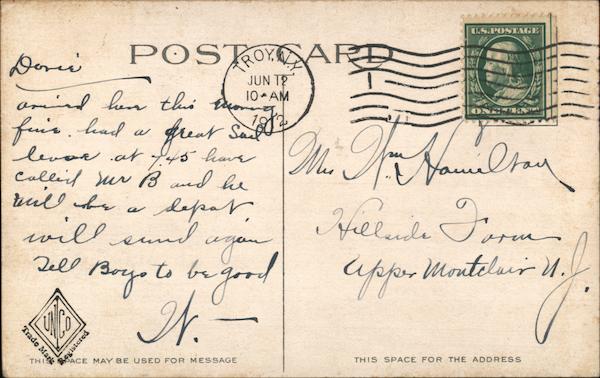 POST CARD
TROY, N.Y.
JUN 12
10-AM
U.S. POSTAGE
ONE CENT
arrived here this morning
fine. had a great Sail
leave at 7.45 have
called Mr B and he
will be a depot
will send again
Tell Boys to be good
W. —
Mrs Wm Hamilton
Hillside Farm
Upper Montclair N.J.
UNCO
Trade Mark Registered
THIS SPACE MAY BE USED FOR MESSAGE
THIS SPACE FOR THE ADDRESS